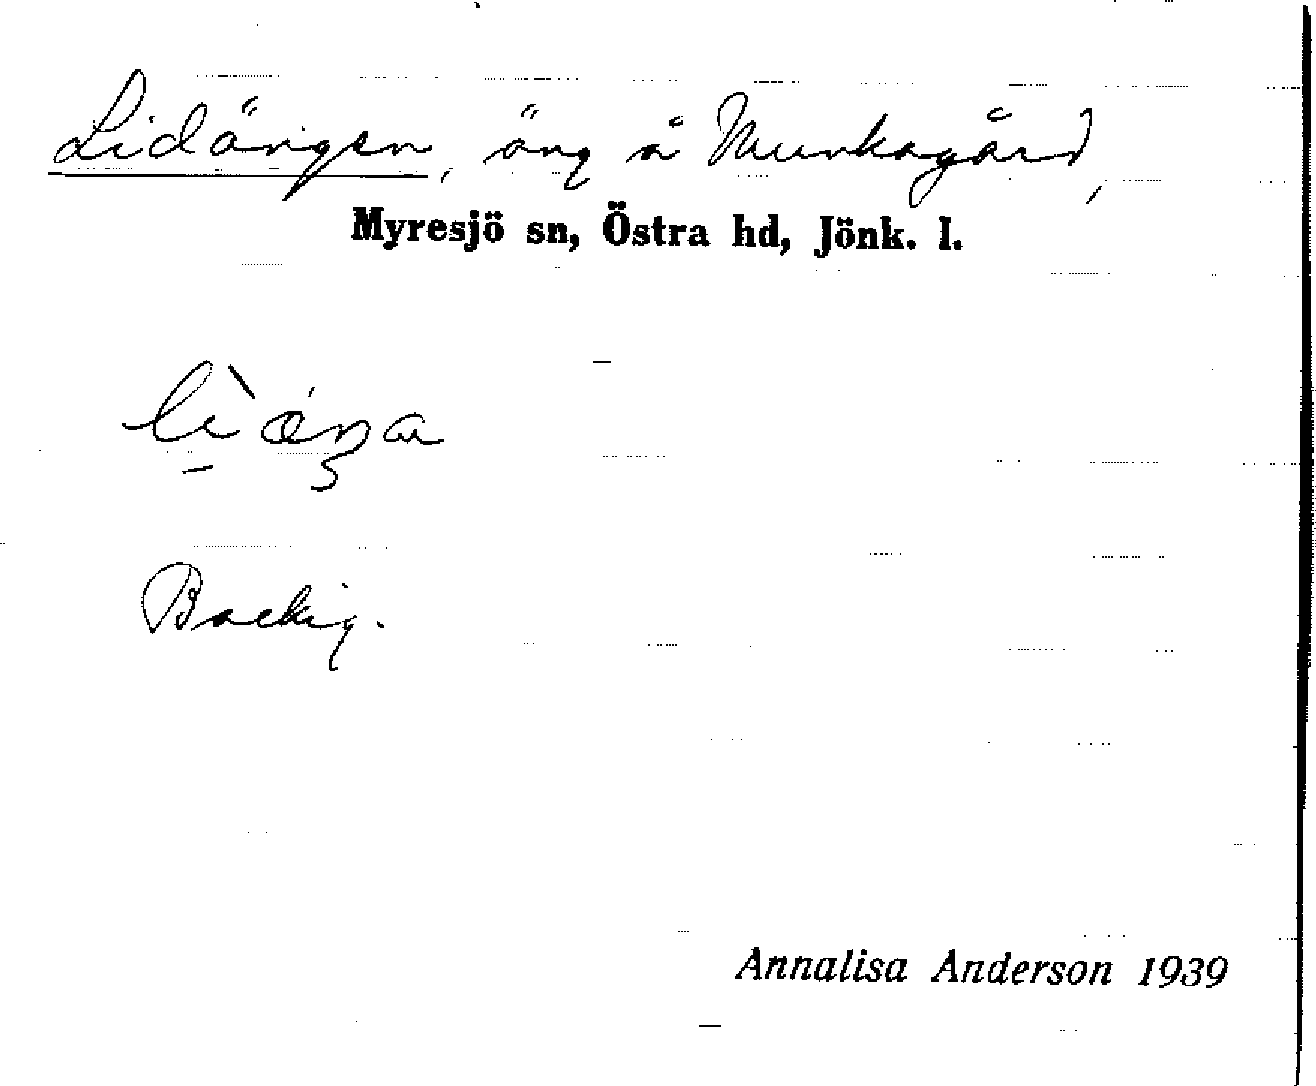 Lidängen, äng å Munkagård,
Myresjö sn, Östra hd, Jönk. l.
Backig.
Annalisa Anderson 1939